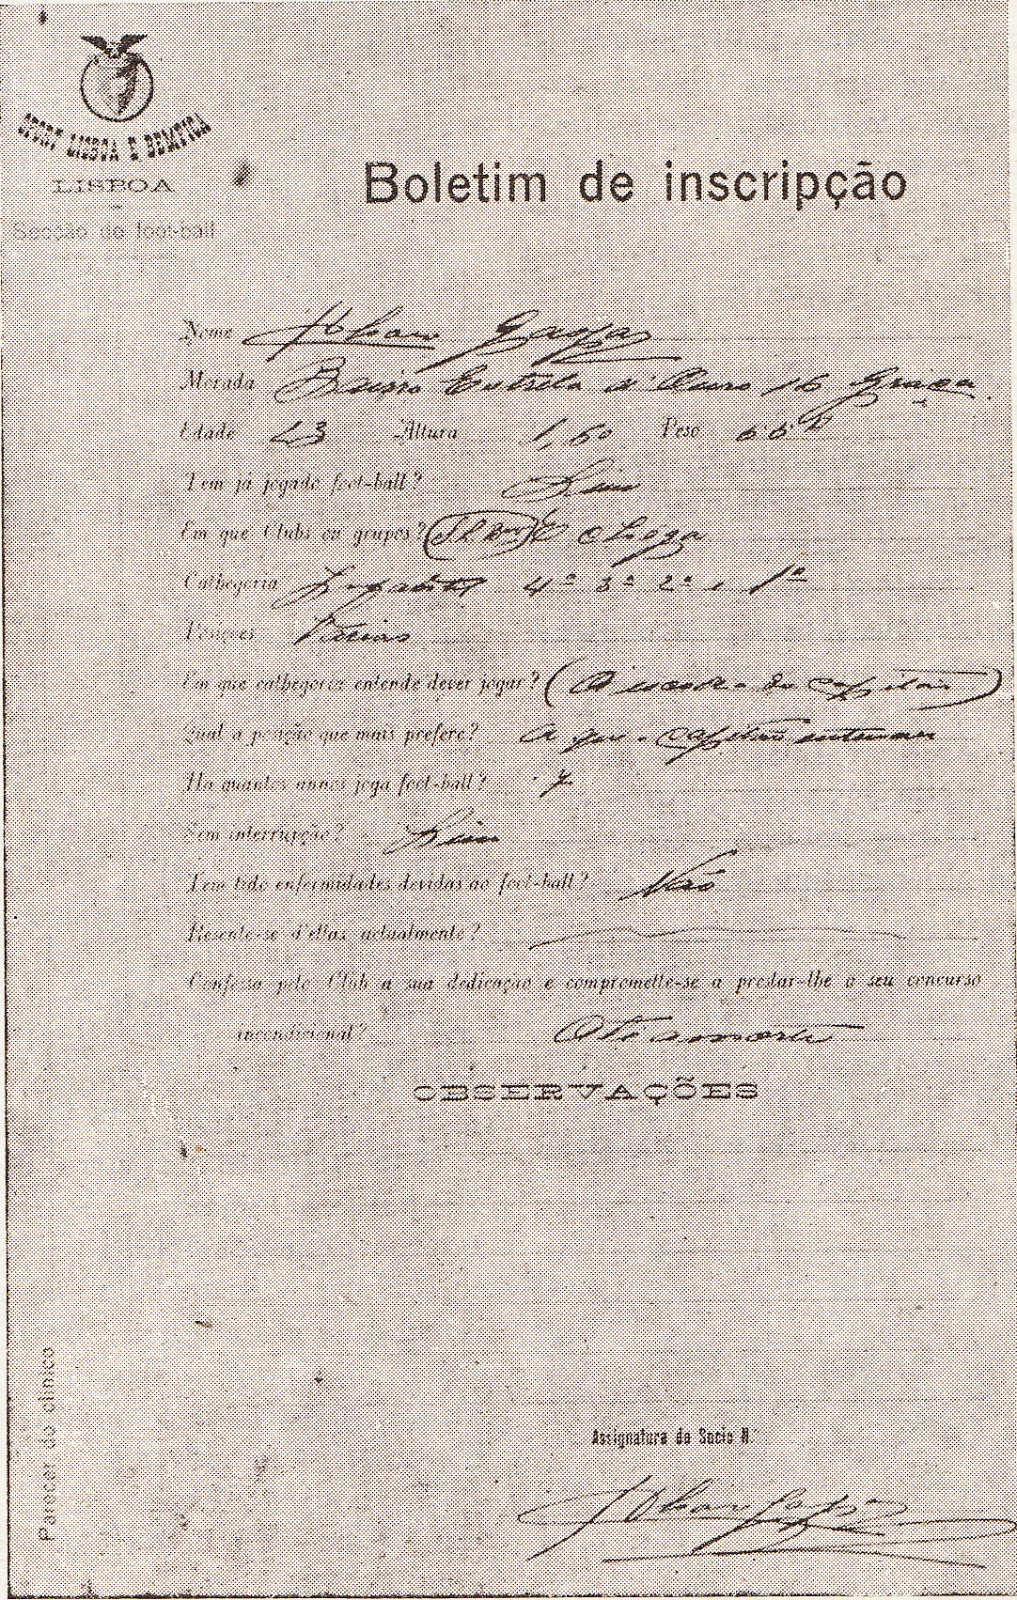 SPORT LISBOA E BEMFICA
LISBOA
Secção de foot-ball
Boletim de inscripção
Nome Alvaro Gaspar
Morada Bairro Estrela d'Ouro 16 Graça
Edade 23 Altura 1,60 Peso 66 K
Tem já jogado foot-ball? Sim
Em que Clubs ou grupos?
Cathegoria Infantil 4ª 3ª 2ª e 1ª
Posições Varias
Em que cathegoria entende dever jogar? (A escolha do capitão)
Qual a posição que mais prefere? A que o capitão entender
Ha quantos annos joga foot-ball? 7
Sem interrupção? Sim
Tem tido enfermidades devidas ao foot-ball? Não
Resente-se d'ellas actualmente?
Confessa pelo Club a sua dedicação e compromette-se a prestar-lhe o seu concurso
incondicional? Até á morte
OBSERVAÇÕES
Parecer do clinico
Assignatura do Socio N.º
Alvaro Gaspar